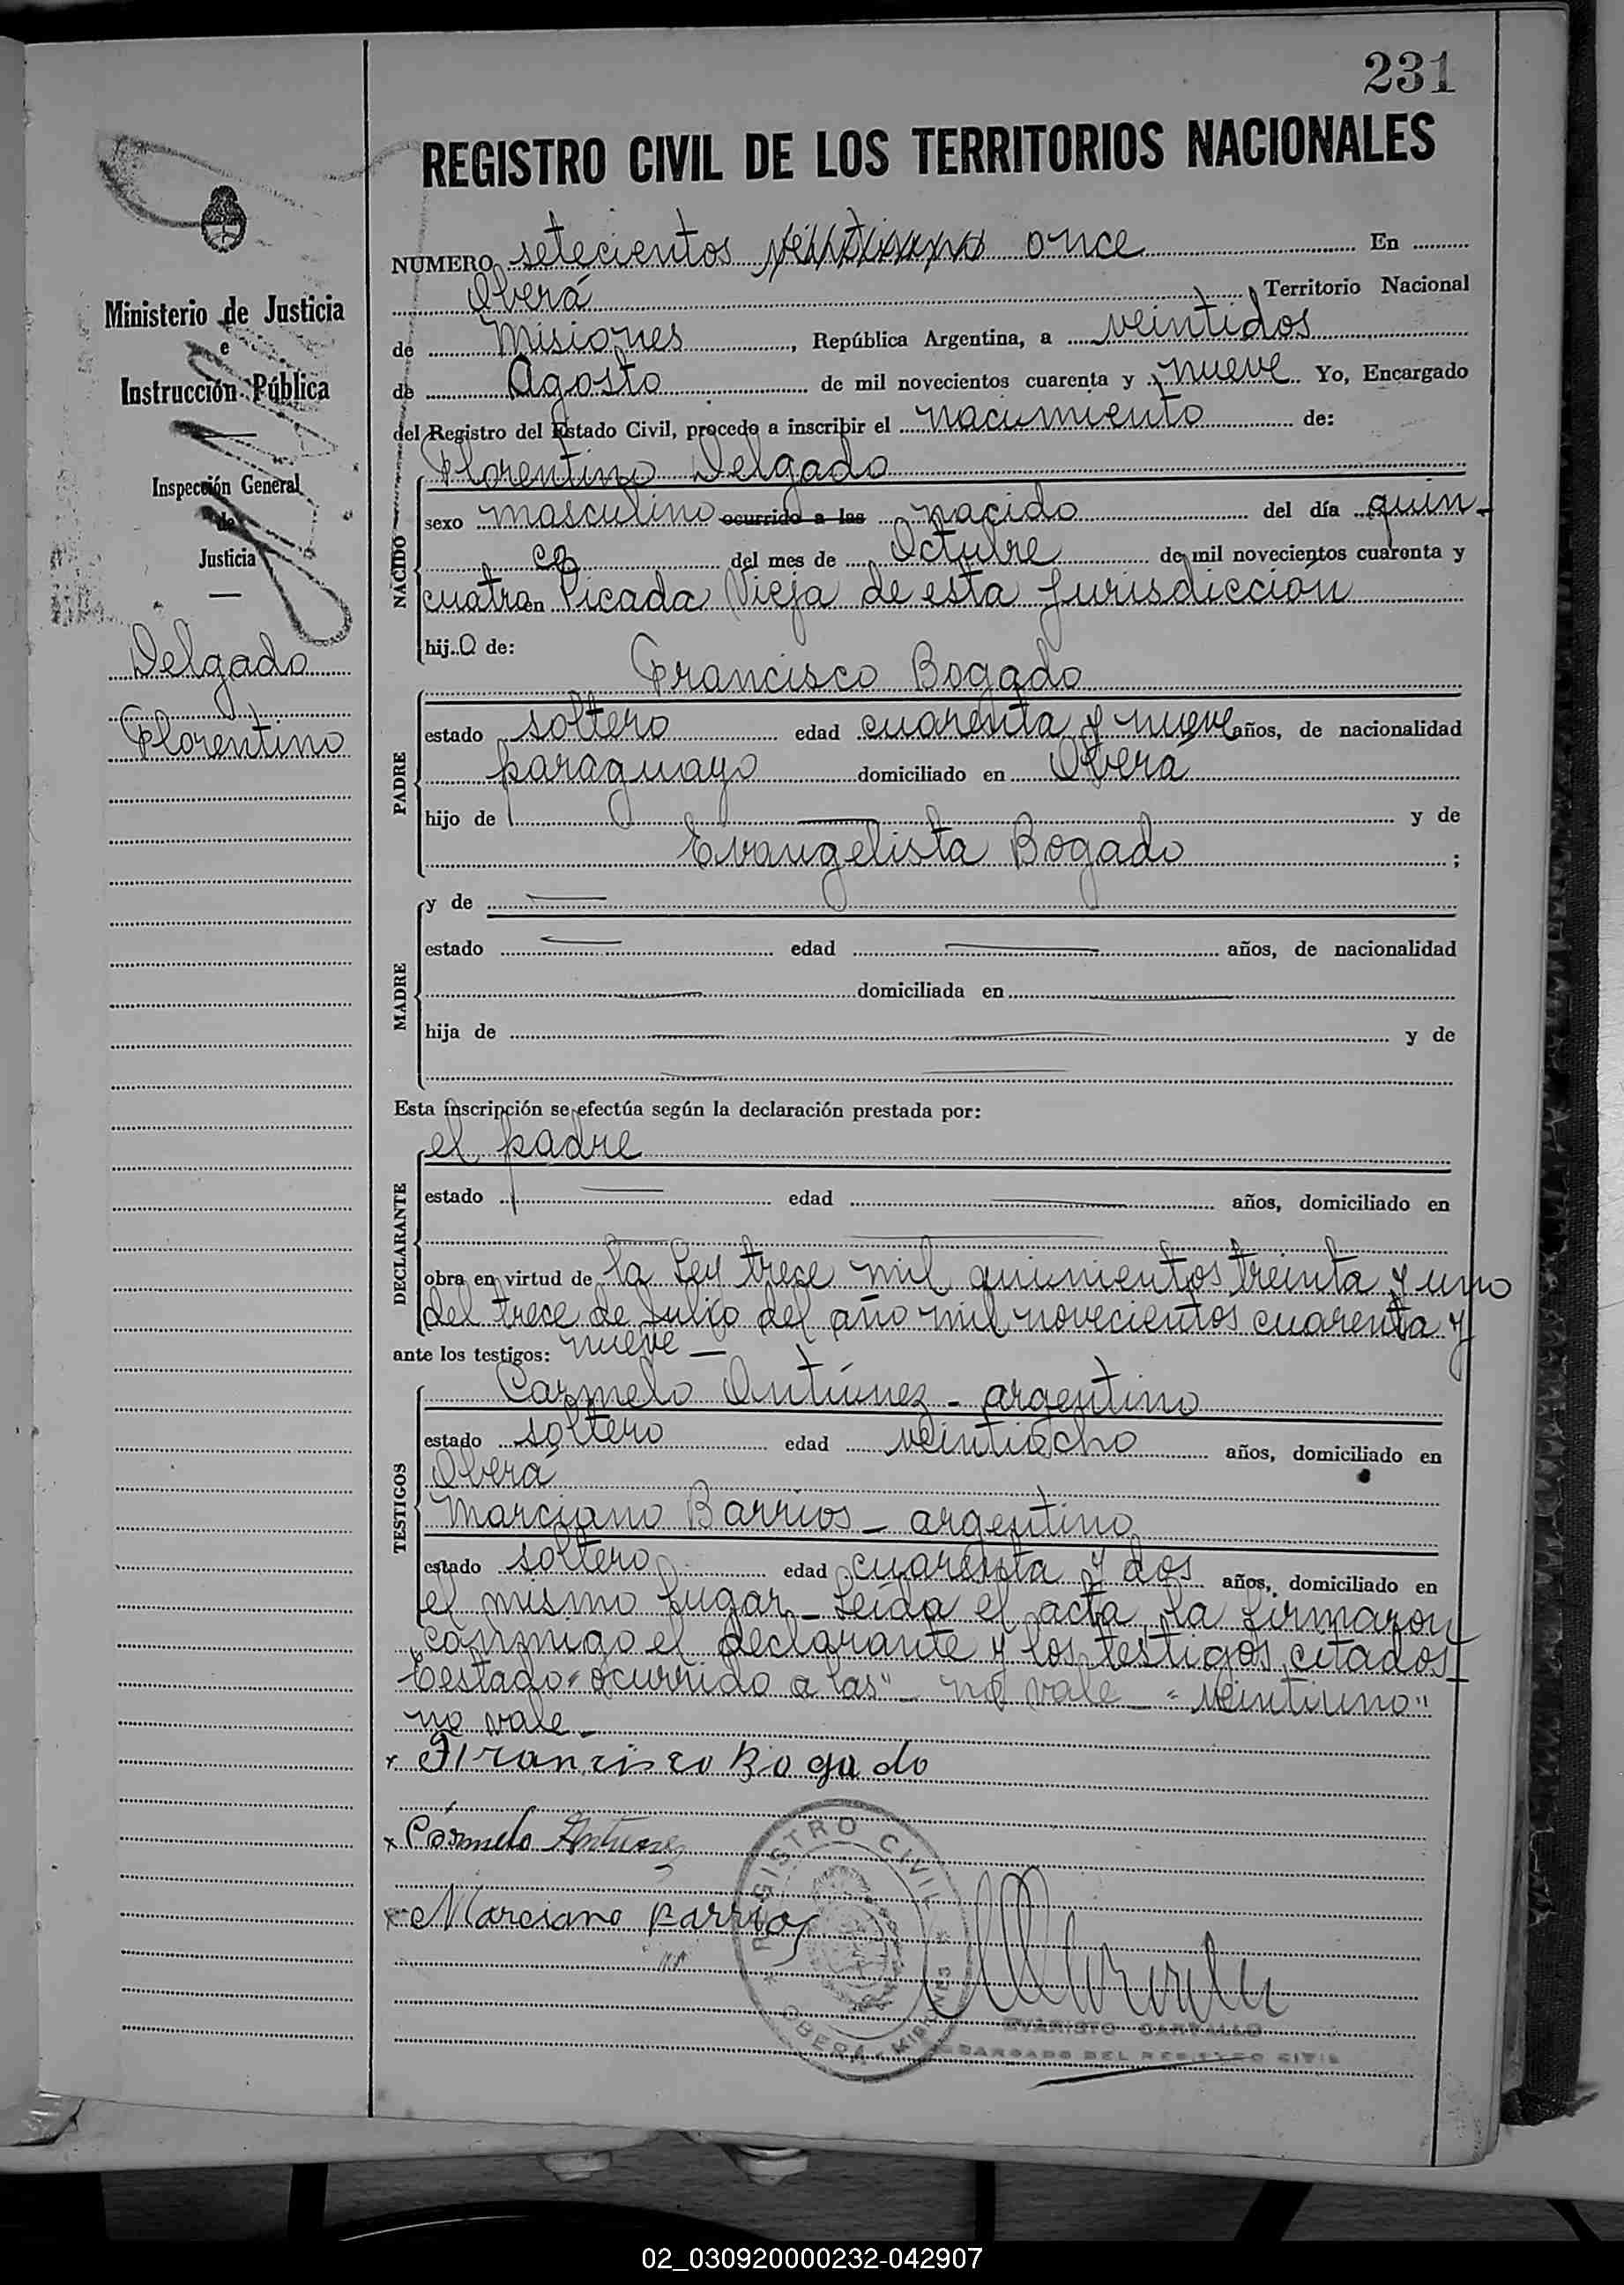 231
REGISTRO CIVIL DE LOS TERRITORIOS NACIONALES
NUMERO setecientos veintiuno once En
Oberá Territorio Nacional
de Misiones, República Argentina, a veintidos
de Agosto de mil novecientos cuarenta y nueve Yo, Encargado
del Registro del Estado Civil, procedo a inscribir el nacimiento de:
Ministerio de Justicia
e
Instrucción Pública
Inspección General
de
Justicia
Delgado
Florentino
NACIDO
Florentino Delgado
sexo masculino ocurrido a las nacido del día quin-
ce del mes de Octubre de mil novecientos cuarenta y
cuatro en Picada Vieja de esta jurisdicción
hijo de:
PADRE
Francisco Bogado
estado soltero edad cuarenta y nueve años, de nacionalidad
paraguayo domiciliado en Oberá
hijo de — y de
Evangelista Bogado ;
MADRE
y de —
estado — edad — años, de nacionalidad
— domiciliada en —
hija de — y de
—
Esta inscripción se efectúa según la declaración prestada por:
DECLARANTE
el padre
estado — edad — años, domiciliado en
—
obra en virtud de la Ley trece mil quinientos treinta y uno
del trece de Julio del año mil novecientos cuarenta y
ante los testigos: nueve —
TESTIGOS
Carmelo Antúnez - argentino
estado soltero edad veintiocho años, domiciliado en
Oberá
Marciano Barrios - argentino
estado soltero edad cuarenta y dos años, domiciliado en
el mismo lugar - Leída el acta, la firmaron
conmigo el declarante y los testigos citados -
Testado "ocurrido a las" - no vale - "veintiuno"
no vale -
x Francisco Bogado
x Cármelo Antunez
x Marciano Barrios
REGISTRO CIVIL
OBERÁ - MISIONES
EVARISTO CARVALLO
ENCARGADO DEL REGISTRO CIVIL
02_030920000232-042907